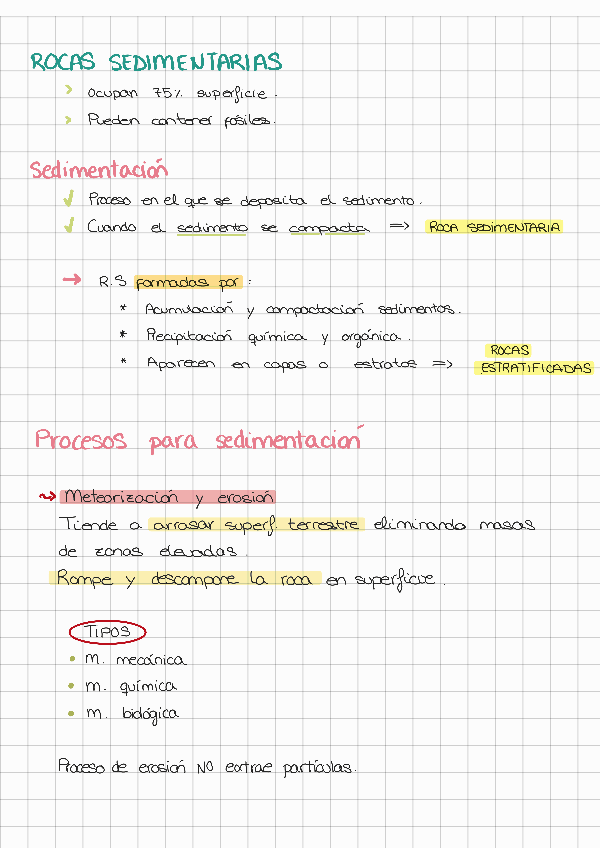 ROCAS SEDIMENTARIAS
> Ocupan 75% superficie.
> Pueden contener fósiles.
Sedimentación
✓ Proceso en el que se deposita el sedimento.
✓ Cuando el sedimento se compacta => ROCA SEDIMENTARIA
→ R.S formadas por:
* Acumulación y compactación sedimentos.
* Precipitación química y orgánica.
* Aparecen en capas o estratos => ROCAS ESTRATIFICADAS
Procesos para sedimentación
↝ Meteorización y erosión
Tiende a arrasar superf. terrestre eliminando masas
de zonas elevadas.
Rompe y descompone la roca en superficie.
TIPOS
• m. mecánica
• m. química
• m. biológica
Proceso de erosión NO extrae partículas.